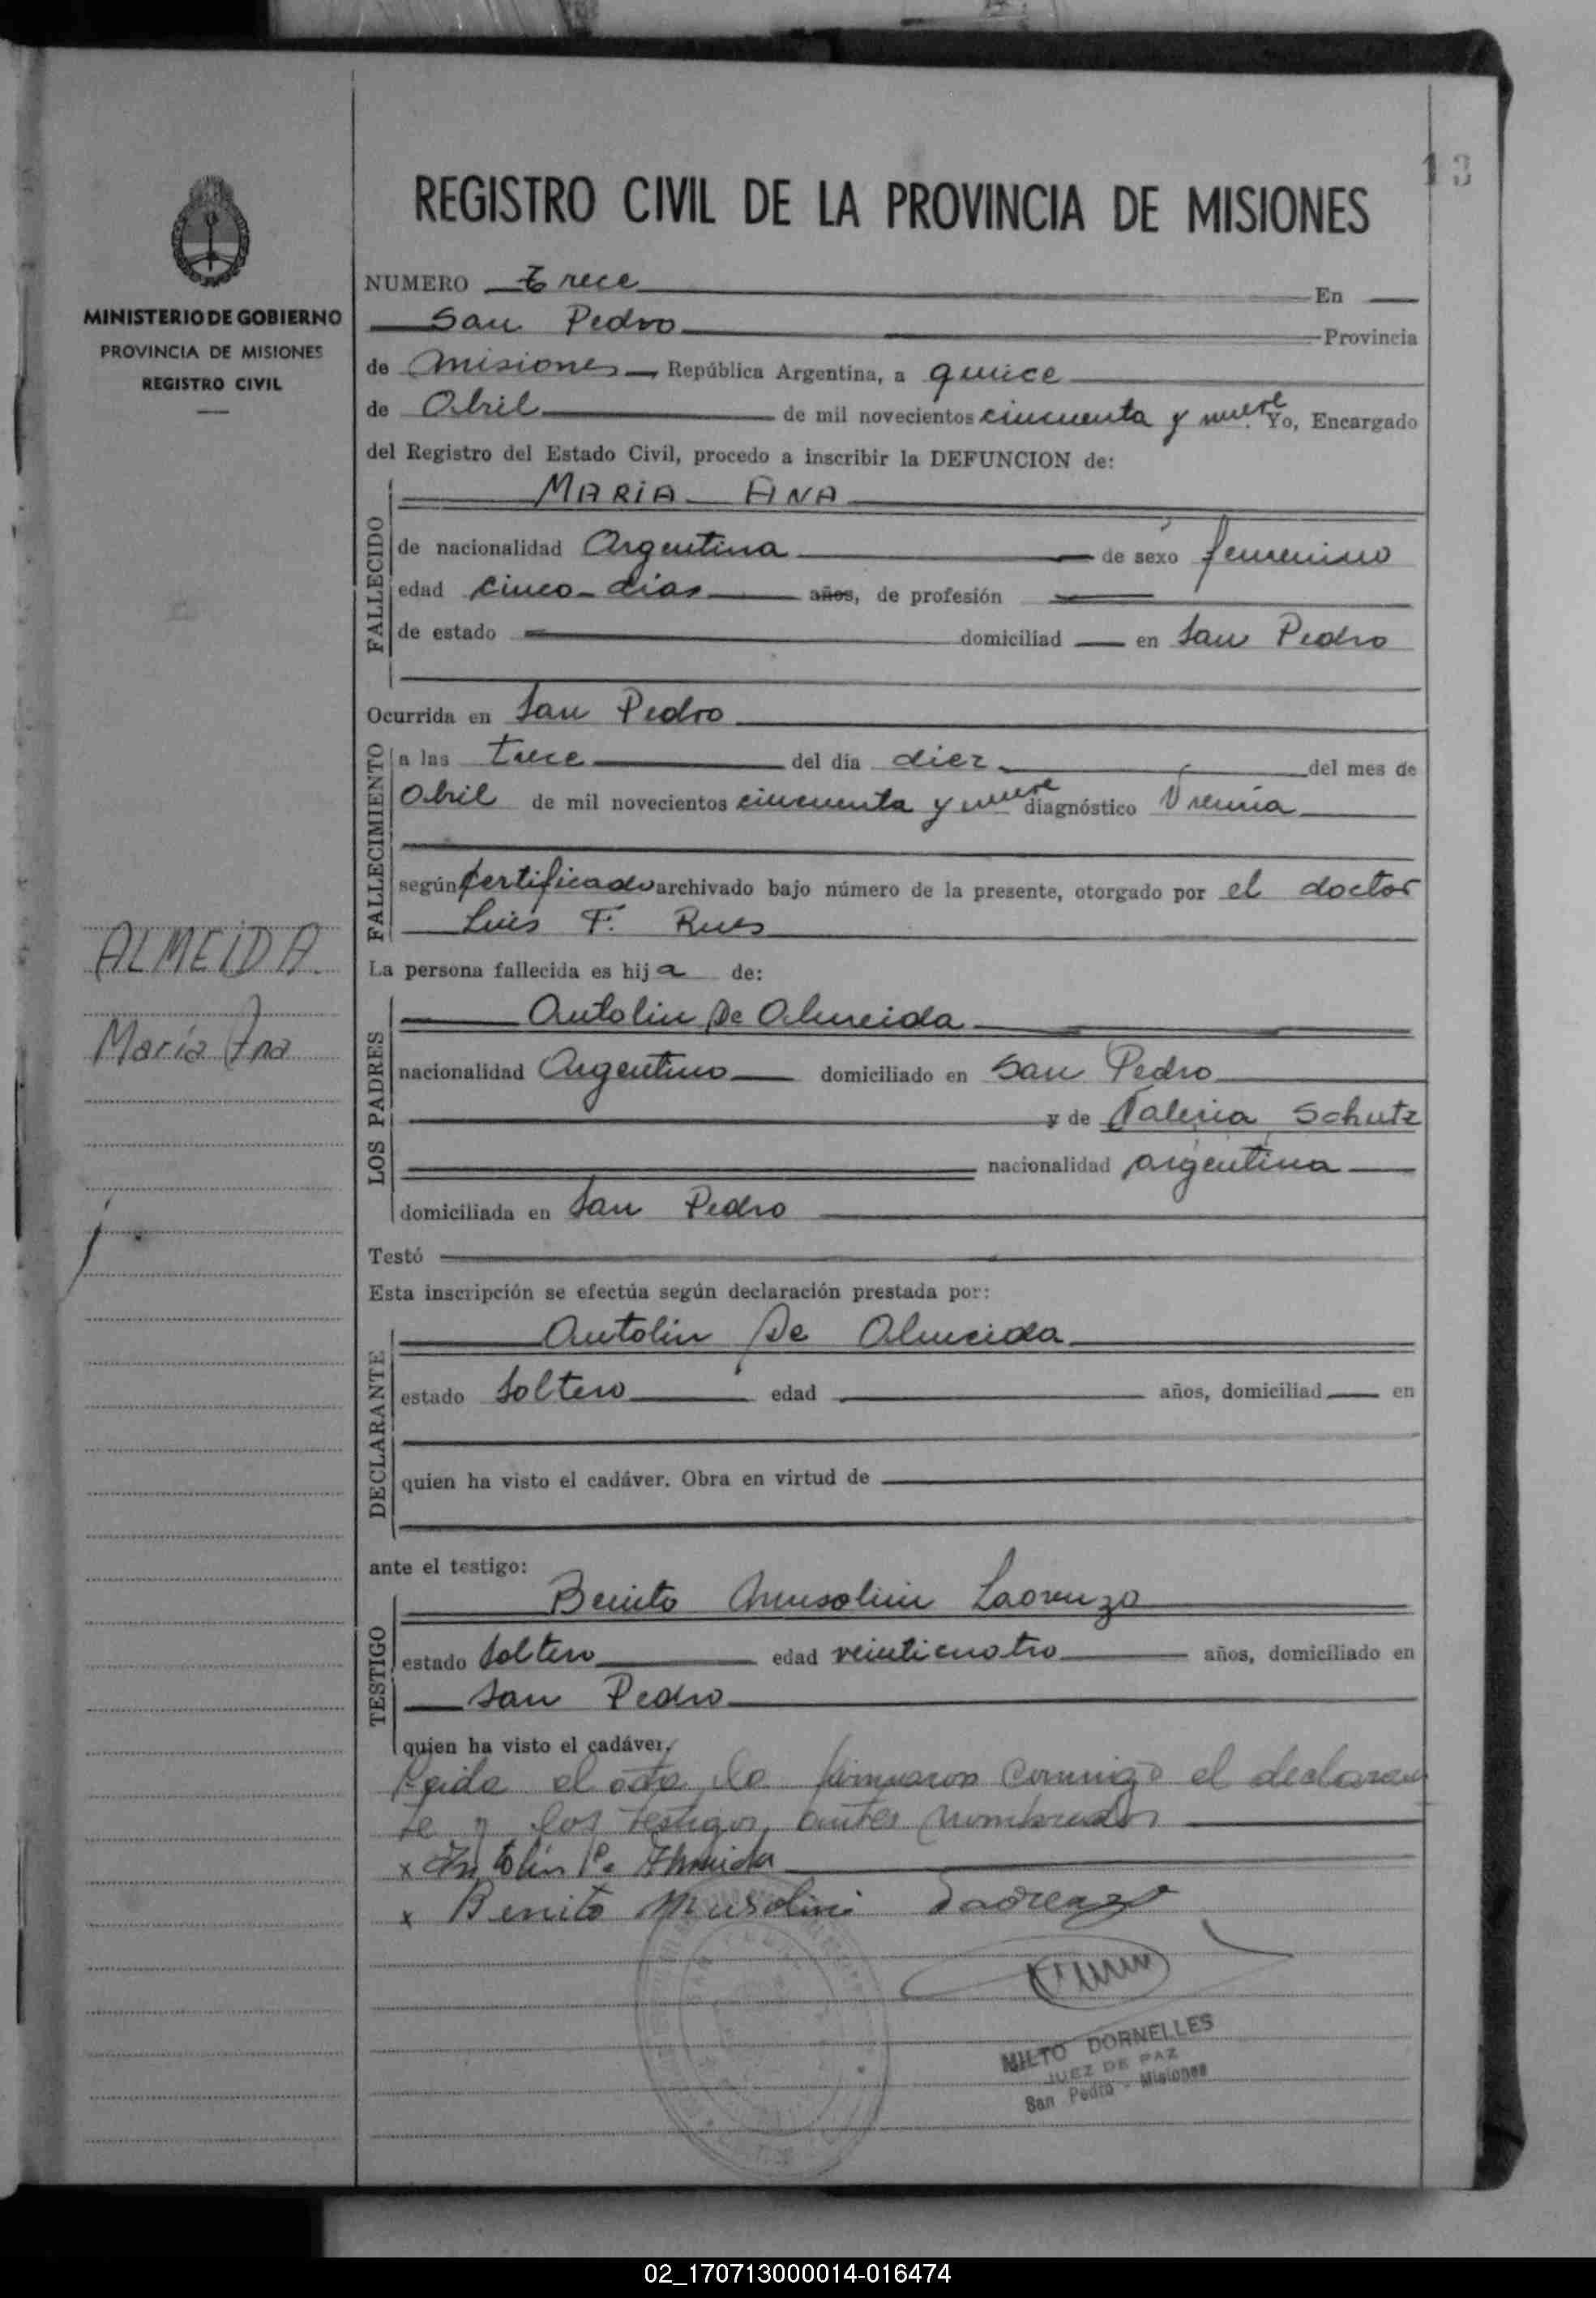 13
REGISTRO CIVIL DE LA PROVINCIA DE MISIONES
MINISTERIO DE GOBIERNO
PROVINCIA DE MISIONES
REGISTRO CIVIL
NUMERO trece En
San Pedro Provincia
de Misiones República Argentina, a quince
de Abril de mil novecientos cincuenta y nueve Yo, Encargado
del Registro del Estado Civil, procedo a inscribir la DEFUNCION de:
FALLECIDO
MARIA ANA
de nacionalidad Argentina de sexo femenino
edad cinco dias años, de profesión
de estado domiciliad en San Pedro
Ocurrida en San Pedro
FALLECIMIENTO
a las trece del día diez del mes de
Abril de mil novecientos cincuenta y nueve diagnóstico Uremia
según certificado archivado bajo número de la presente, otorgado por el doctor
Luis F. Rues
ALMEIDA
María Ana
La persona fallecida es hija de:
LOS PADRES
Antolin De Almeida
nacionalidad Argentino domiciliado en San Pedro
y de Valeria Schutz
nacionalidad argentina
domiciliada en San Pedro
Testó
Esta inscripción se efectúa según declaración prestada por:
DECLARANTE
Antolin De Almeida
estado Soltero edad años, domiciliad en
quien ha visto el cadáver. Obra en virtud de
ante el testigo:
TESTIGO
Benito Musolini Laorenzo
estado Soltero edad veinticuatro años, domiciliado en
San Pedro
quien ha visto el cadáver.
Leida el acta la firmaron conmigo el declaran
te y los testigos antes nombrados
x Antolín De Almeida
x Benito Musolini
MILTO DORNELLES
JUEZ DE PAZ
San Pedro - Misiones
02_170713000014-016474